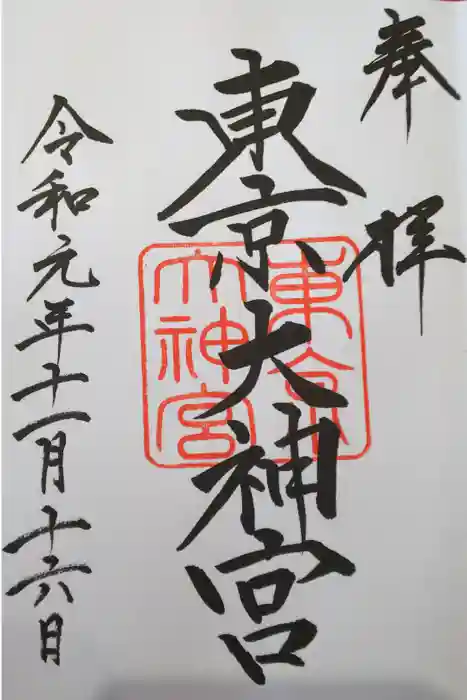 奉拝
東京大神宮
東京大神宮
令和元年十一月十六日